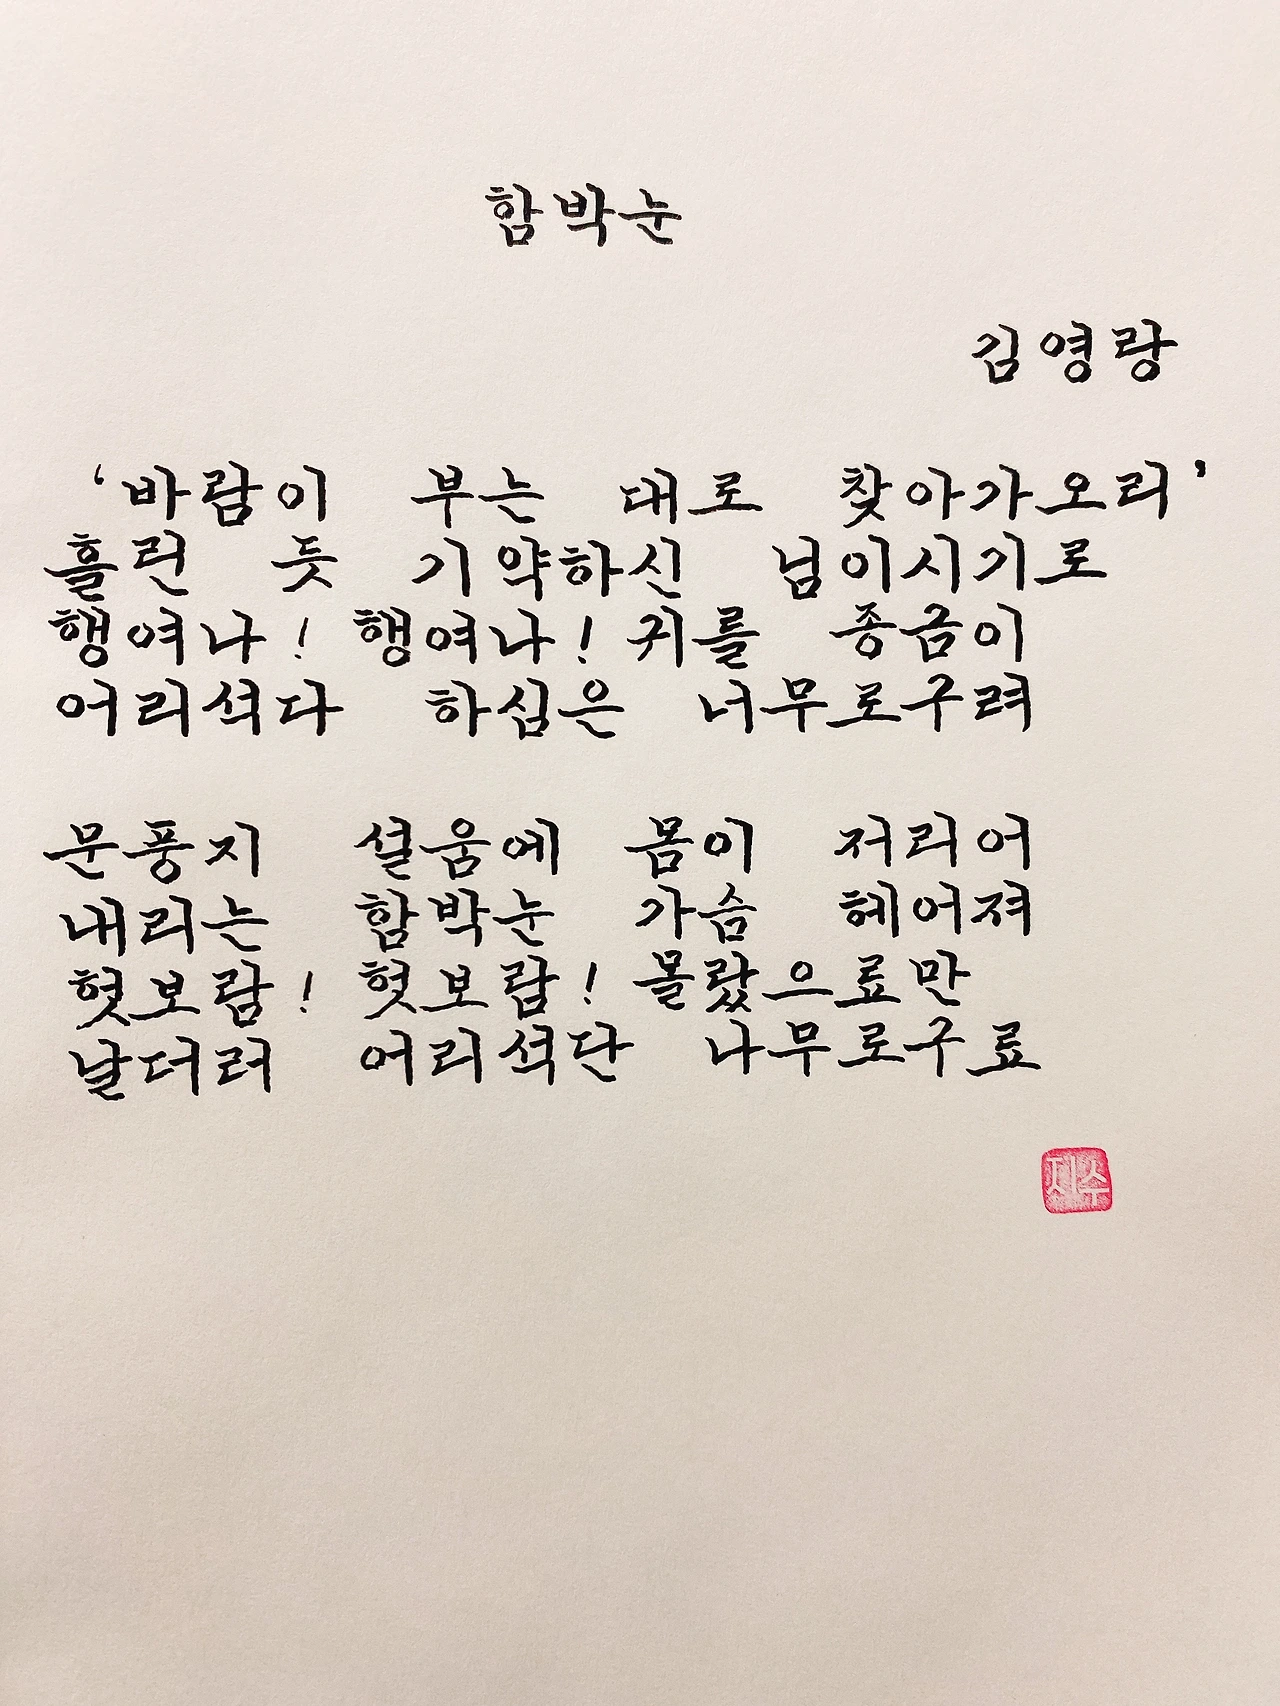 함박눈
김영랑
‘바람이 부는 대로 찾아가오리’
흘린 듯 기약하신 님이시기로
행여나! 행여나! 귀를 종금이
어리석다 하심은 너무로구려
문풍지 설움에 몸이 저리어
내리는 함박눈 가슴 헤어져
헛보람! 헛보람! 몰랐으료만
날더러 어리석단 너무로구료
지수